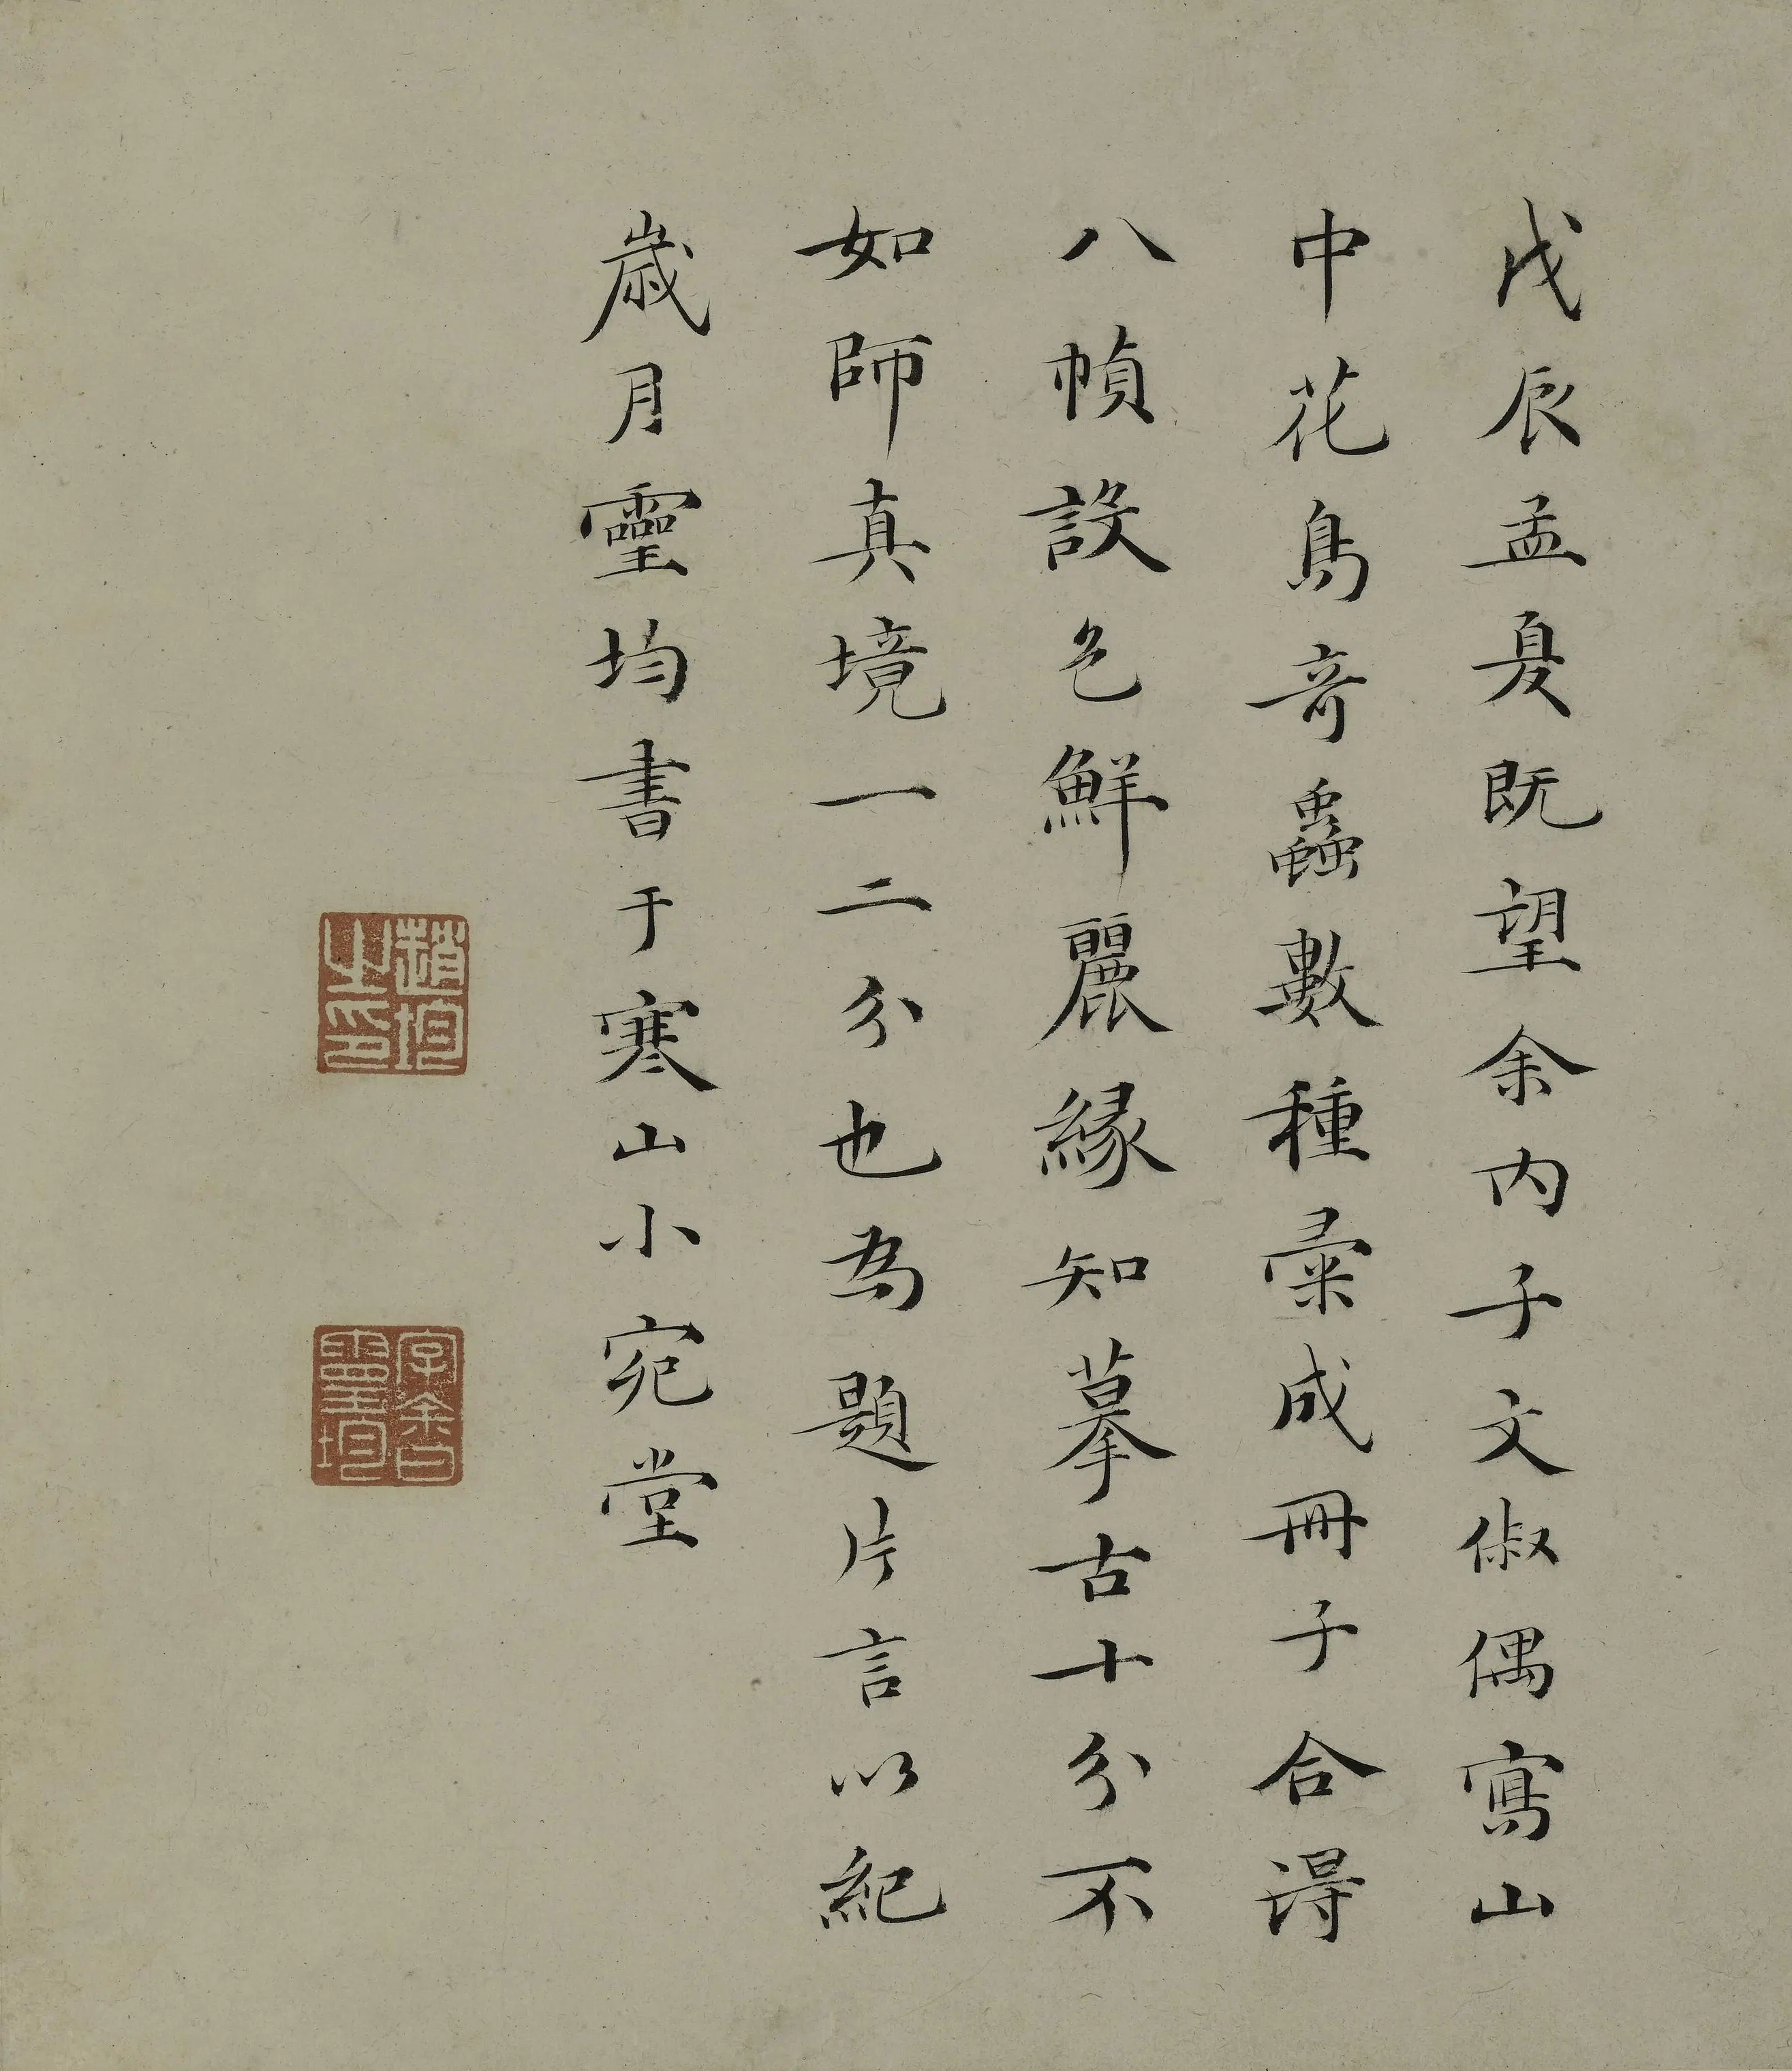 戊辰孟夏既望余内子文俶偶寫山
中花鳥奇蟲數種彚成冊子合得
八幀設色鮮麗縁知摹古十分不
如師真境一二分也為題片言以紀
歲月靈均書于寒山小宛堂
趙均之印
字余曰靈均